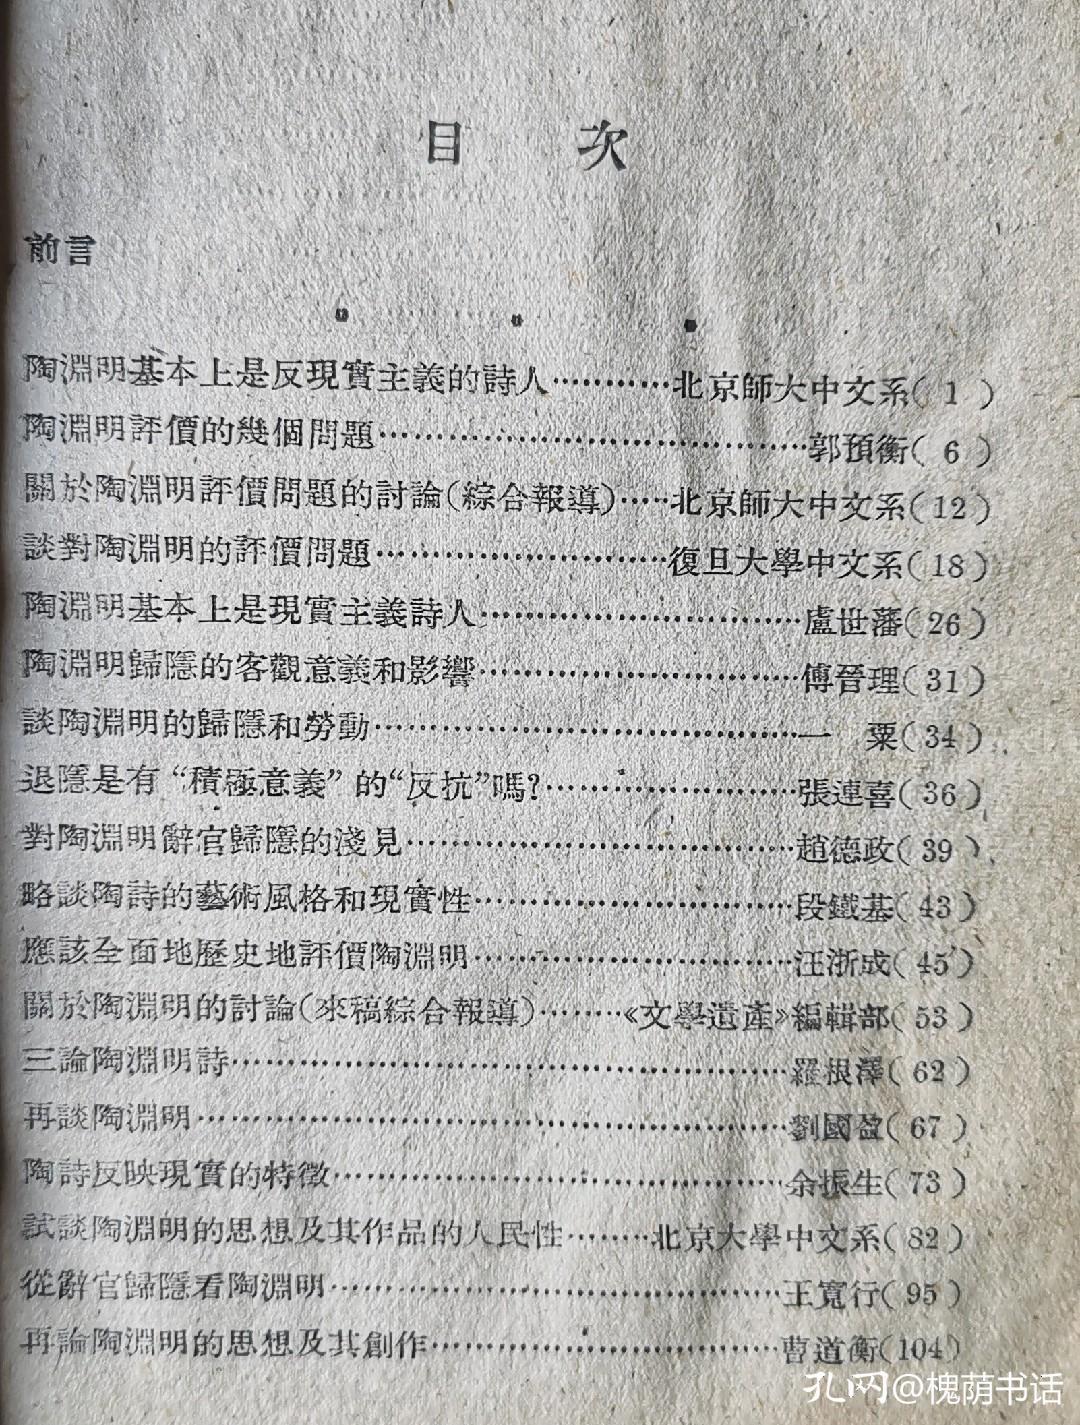 目 次
前言
陶淵明基本上是反現實主義的詩人…………北京師大中文系( 1 )
陶淵明評價的幾個問題……………………………………郭預衡( 6 )
關於陶淵明評價問題的討論(綜合報導)……北京師大中文系(12)
談對陶淵明的評價問題…………………………復旦大學中文系(18)
陶淵明基本上是現實主義詩人……………………………盧世藩(26)
陶淵明歸隱的客觀意義和影響……………………………傅晉理(31)
談陶淵明的歸隱和勞動……………………………………一 粟(34)
退隱是有“積極意義”的“反抗”嗎?………………………張連喜(36)
對陶淵明辭官歸隱的淺見…………………………………趙德政(39)
略談陶詩的藝術風格和現實性……………………………段鐵基(43)
應該全面地歷史地評價陶淵明……………………………汪浙成(45)
關於陶淵明的討論(來稿綜合報導)………《文學遺產》編輯部(53)
三論陶淵明詩………………………………………………羅根澤(62)
再談陶淵明…………………………………………………劉國盈(67)
陶詩反映現實的特徵………………………………………余振生(73)
試談陶淵明的思想及其作品的人民性………北京大學中文系(82)
從辭官歸隱看陶淵明………………………………………王寬行(95)
再論陶淵明的思想及其創作………………………………曹道衡(104)
孔网@槐荫书话